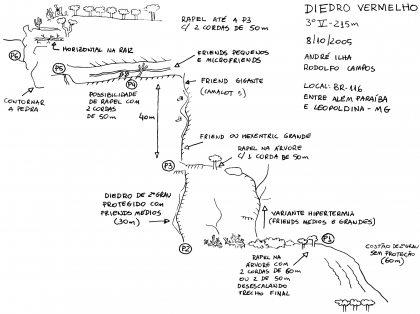 DIEDRO VERMELHO
3º V - 215m
8/10/2005
ANDRÉ ILHA
RODOLFO CAMPOS
LOCAL: BR-116
ENTRE ALÉM PARAÍBA
E LEOPOLDINA - MG
RAPEL ATÉ A P3
C/ 2 CORDAS DE 50m
HORIZONTAL NA RAIZ
P6
CONTORNAR
A PEDRA
P5
P4
FRIENDS PEQUENOS
E MICROFRIENDS
FRIEND GIGANTE
(CAMALOT 5)
POSSIBILIDADE
DE RAPEL COM
2 CORDAS
DE 50m
40m
FRIEND OU HEXENTRIC GRANDE
RAPEL NA ÁRVORE
C/ 1 CORDA DE 50m
P3
DIEDRO DE 2º GRAU
PROTEGIDO COM
FRIENDS MÉDIOS
(30m)
VARIANTE HIPERTERMIA
(FRIENDS MÉDIOS E GRANDES)
P2
P1
RAPEL NA
ÁRVORE COM
2 CORDAS DE 60m
OU 2 DE 50m
DESESCALANDO
TRECHO FINAL
COSTÃO DE 2º GRAU
SEM PROTEÇÃO
(60m)